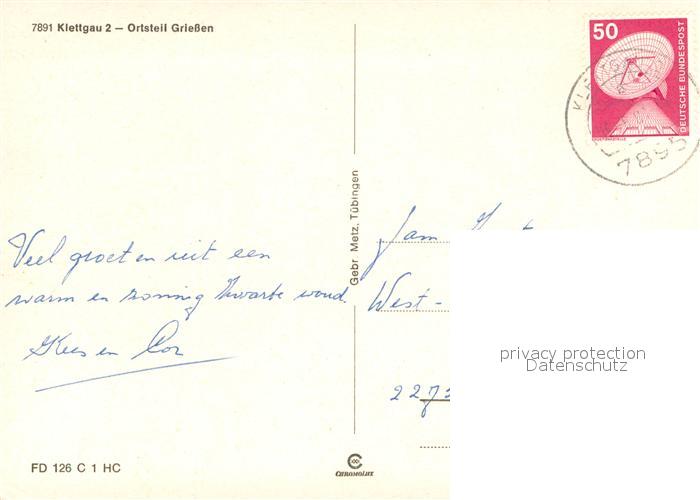 7891 Klettgau 2 – Ortsteil Grießen
50
DEUTSCHE BUNDESPOST
7895
Gebr. Metz, Tübingen
Veel groeten uit een
warm en zonnig Zwarte woud.
Kees en Cor
West-
privacy protection
Datenschutz
FD 126 C 1 HC
CHROMOLUX